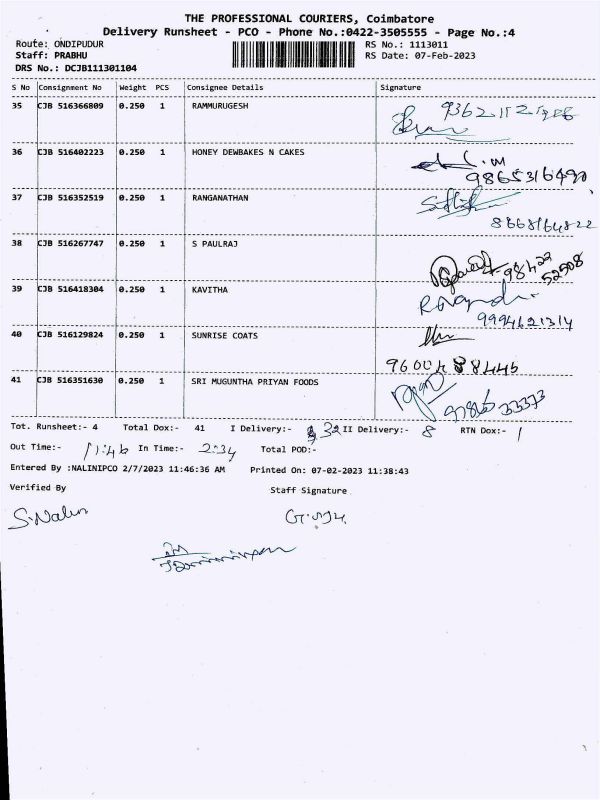 THE PROFESSIONAL COURIERS, Coimbatore
Delivery Runsheet - PCO - Phone No.:0422-3505555 - Page No.:4
Route: ONDIPUDUR RS No.: 1113011
Staff: PRABHU RS Date: 07-Feb-2023
DRS No.: DCJB111301104
S No Consignment No Weight PCS Consignee Details Signature
35 CJB 516366809 0.250 1 RAMMURUGESH
36 CJB 516402223 0.250 1 HONEY DEWBAKES N CAKES
9865316490
37 CJB 516352519 0.250 1 RANGANATHAN
8668164822
38 CJB 516267747 0.250 1 S PAULRAJ
98422
52508
39 CJB 516418304 0.250 1 KAVITHA
9994621314
40 CJB 516129824 0.250 1 SUNRISE COATS
41 CJB 516351630 0.250 1 SRI MUGUNTHA PRIYAN FOODS
Tot. Runsheet:- 4 Total Dox:- 41 I Delivery:- 32 II Delivery:- 8 RTN Dox:- 1
Out Time:- 11:46 In Time:- 2:34 Total POD:-
Entered By :NALINIPCO 2/7/2023 11:46:36 AM Printed On: 07-02-2023 11:38:43
Verified By Staff Signature
S.Nalini